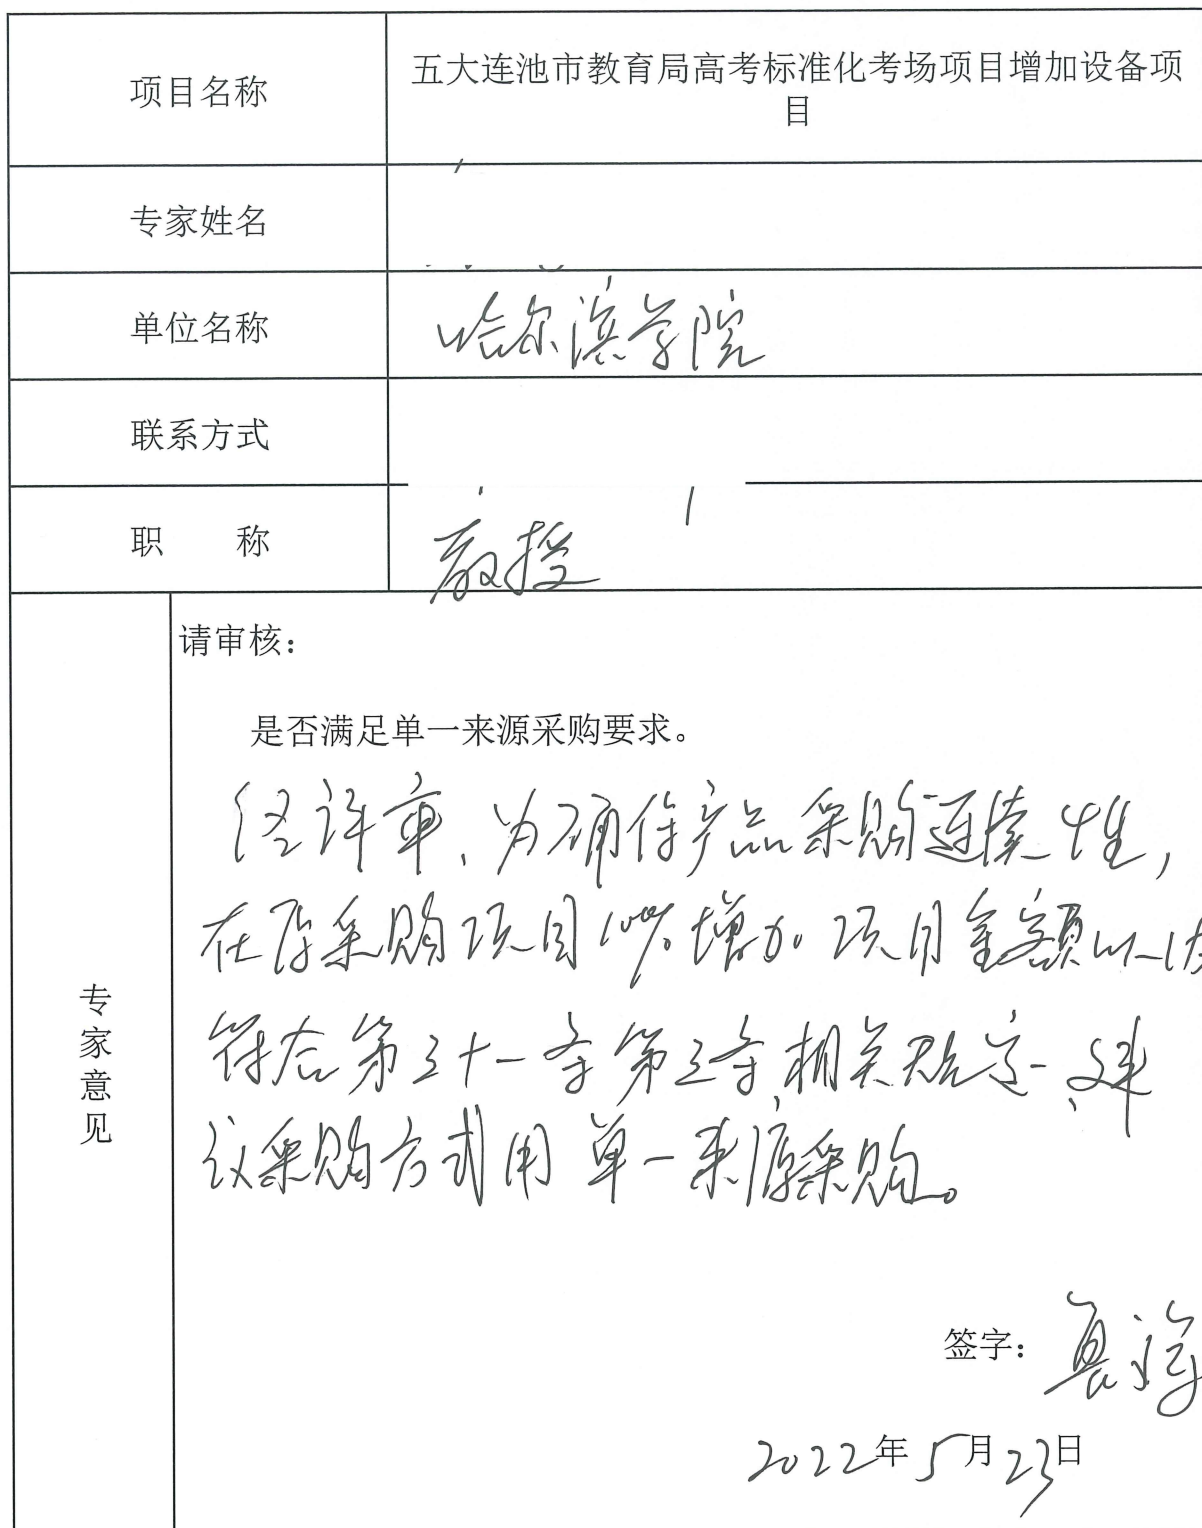 项目名称
五大连池市教育局高考标准化考场项目增加设备项
目
专家姓名
单位名称
哈尔滨学院
联系方式
职 称
教授
专家意见
请审核：
是否满足单一来源采购要求。
经评审、为确保产品采购连续性，
在原采购项目10%增加项目金额以内
符合第三十一条第三条相关规定、建
议采购方式用单一来源采购。
签字：
2022年5月23日